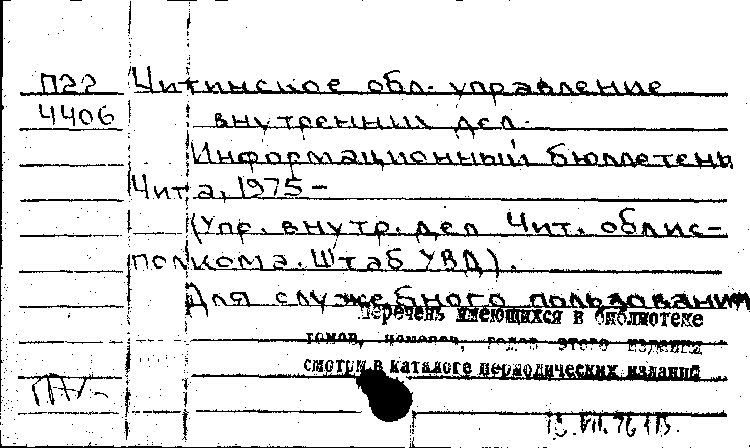 П22 Читинское обл. управление
4406 внутренних дел.
Информационный бюллетень
Чита, 1975 -
(Упр. внутр. дел Чит. облис-
полкома. Штаб УВД).
Для служебного пользования
Перечень имеющихся в библиотеке
томов, номеров, годов этого издания
смотри в каталоге периодических изданий